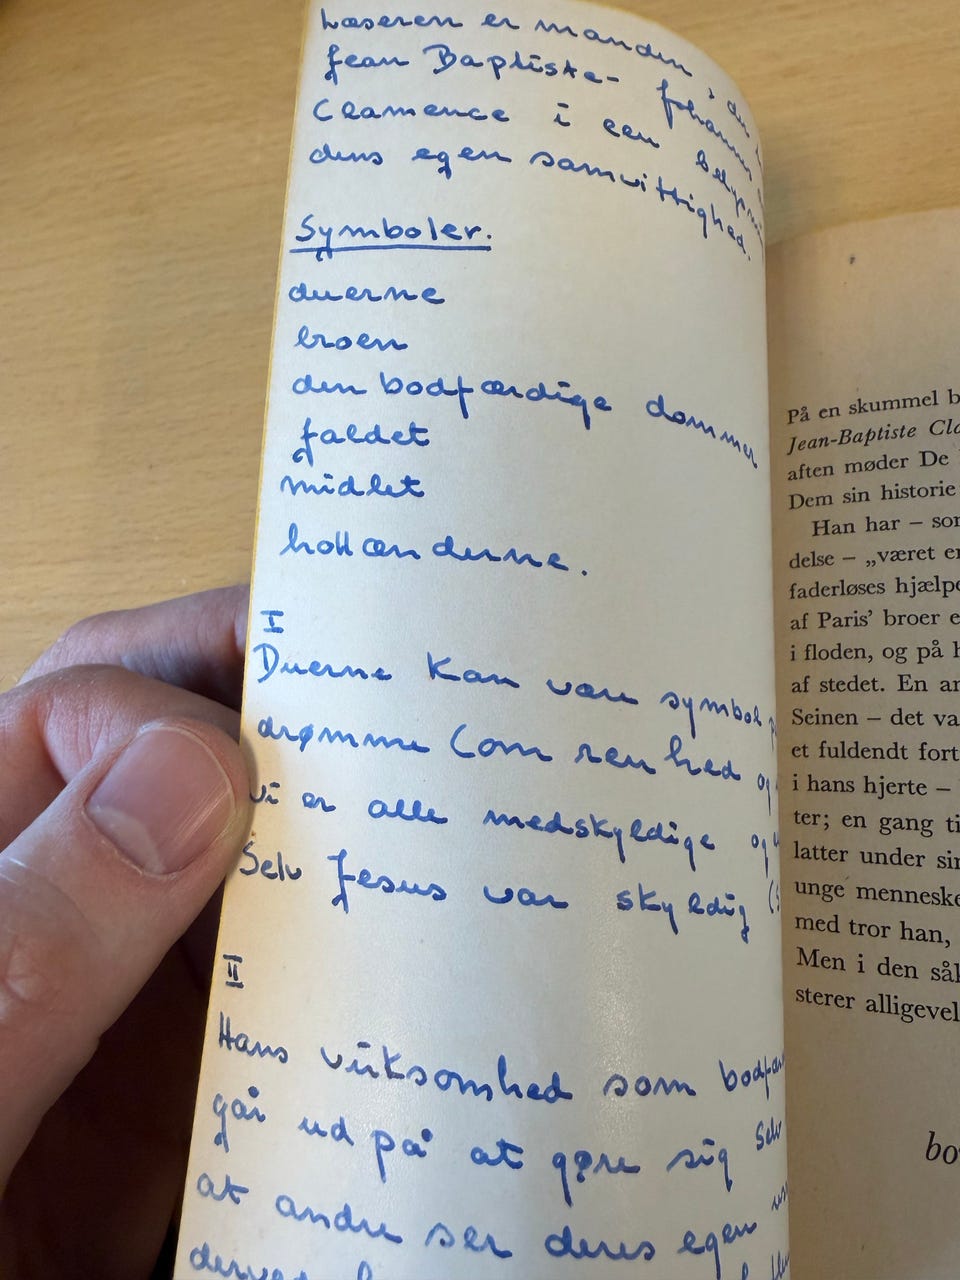 Læseren er manden i den
Jean Baptiste - Johannes
Clamence i een
dens egen samvittighed.
Symboler.
duerne
broen
den bodfærdige dommer
faldet
midlet
hollænderne.
I
Duerne kan være symbol
drømme (om renhed og
vi er alle medskyldige og
Selv Jesus var skyldig (
II
Hans virksomhed som
går ud på at gøre sig selv
at andre ser deres egen
På en skummel
Jean-Baptiste
aften møder De
Dem sin historie
Han har –
delse – „været
faderløses
af Paris' broer
i floden, og på
af stedet. En
Seinen – det
et fuldendt
i hans hjerte –
ter; en gang
latter under
unge
med tror han,
Men i den
sterer alligevel